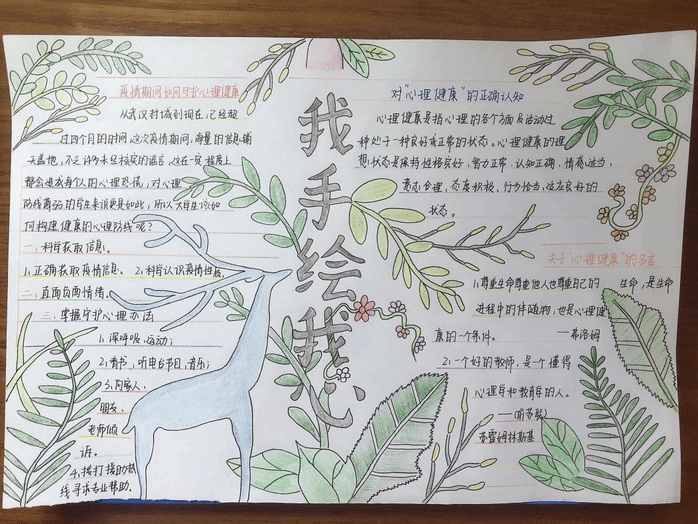 疫情期间如何守护心理健康
从武汉封城到现在,已经超
过四个月的时间,这次疫情期间,海量的信息铺
天盖地,不乏许多未经核实的谣言,这在一定程度上
都会造成每个人的心理恐慌,对心理
防线薄弱的学生来说更是如此,所以大学生该如
何构建健康的心理防线呢?
一、科学获取信息。
1.正确获取疫情信息、2.科学认识疫情性质
二、直面负面情绪。
三、掌握守护心理办法
1、深呼吸、运动;
2、看书、听电台节目、音乐;
3、向家人、
朋友、
老师倾
诉。
4、拨打援助热
线寻求专业帮助。
我手绘我心
对“心理健康”的正确认知
心理健康是指心理的各个方面及活动过
程处于一种良好或正常的状态。心理健康的理
想状态是保持性格良好、智力正常、认知正确、情感适当、
意志合理、态度积极、行为恰当、适应良好的
状态。
关于“心理健康”的名言
1.尊重生命尊重他人也尊重自己的生命,是生命
进程中的伴随物,也是心理健
康的一个条件。——弗洛姆
2.一个好的教师,是一个懂得
心理学和教育学的人。
——(前苏联)
苏霍姆林斯基